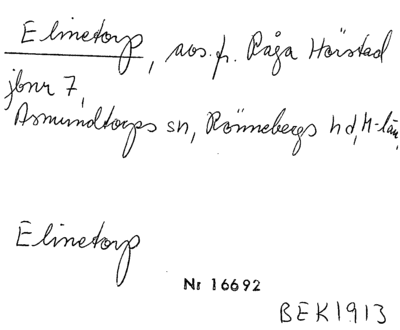 Elinetorp, avs. fr. Råga Hörstad
jbnr 7,
Asmundtorps sn, Rönnebergs hd, M-län,
Elinetorp
Nr 16692
BEK1913